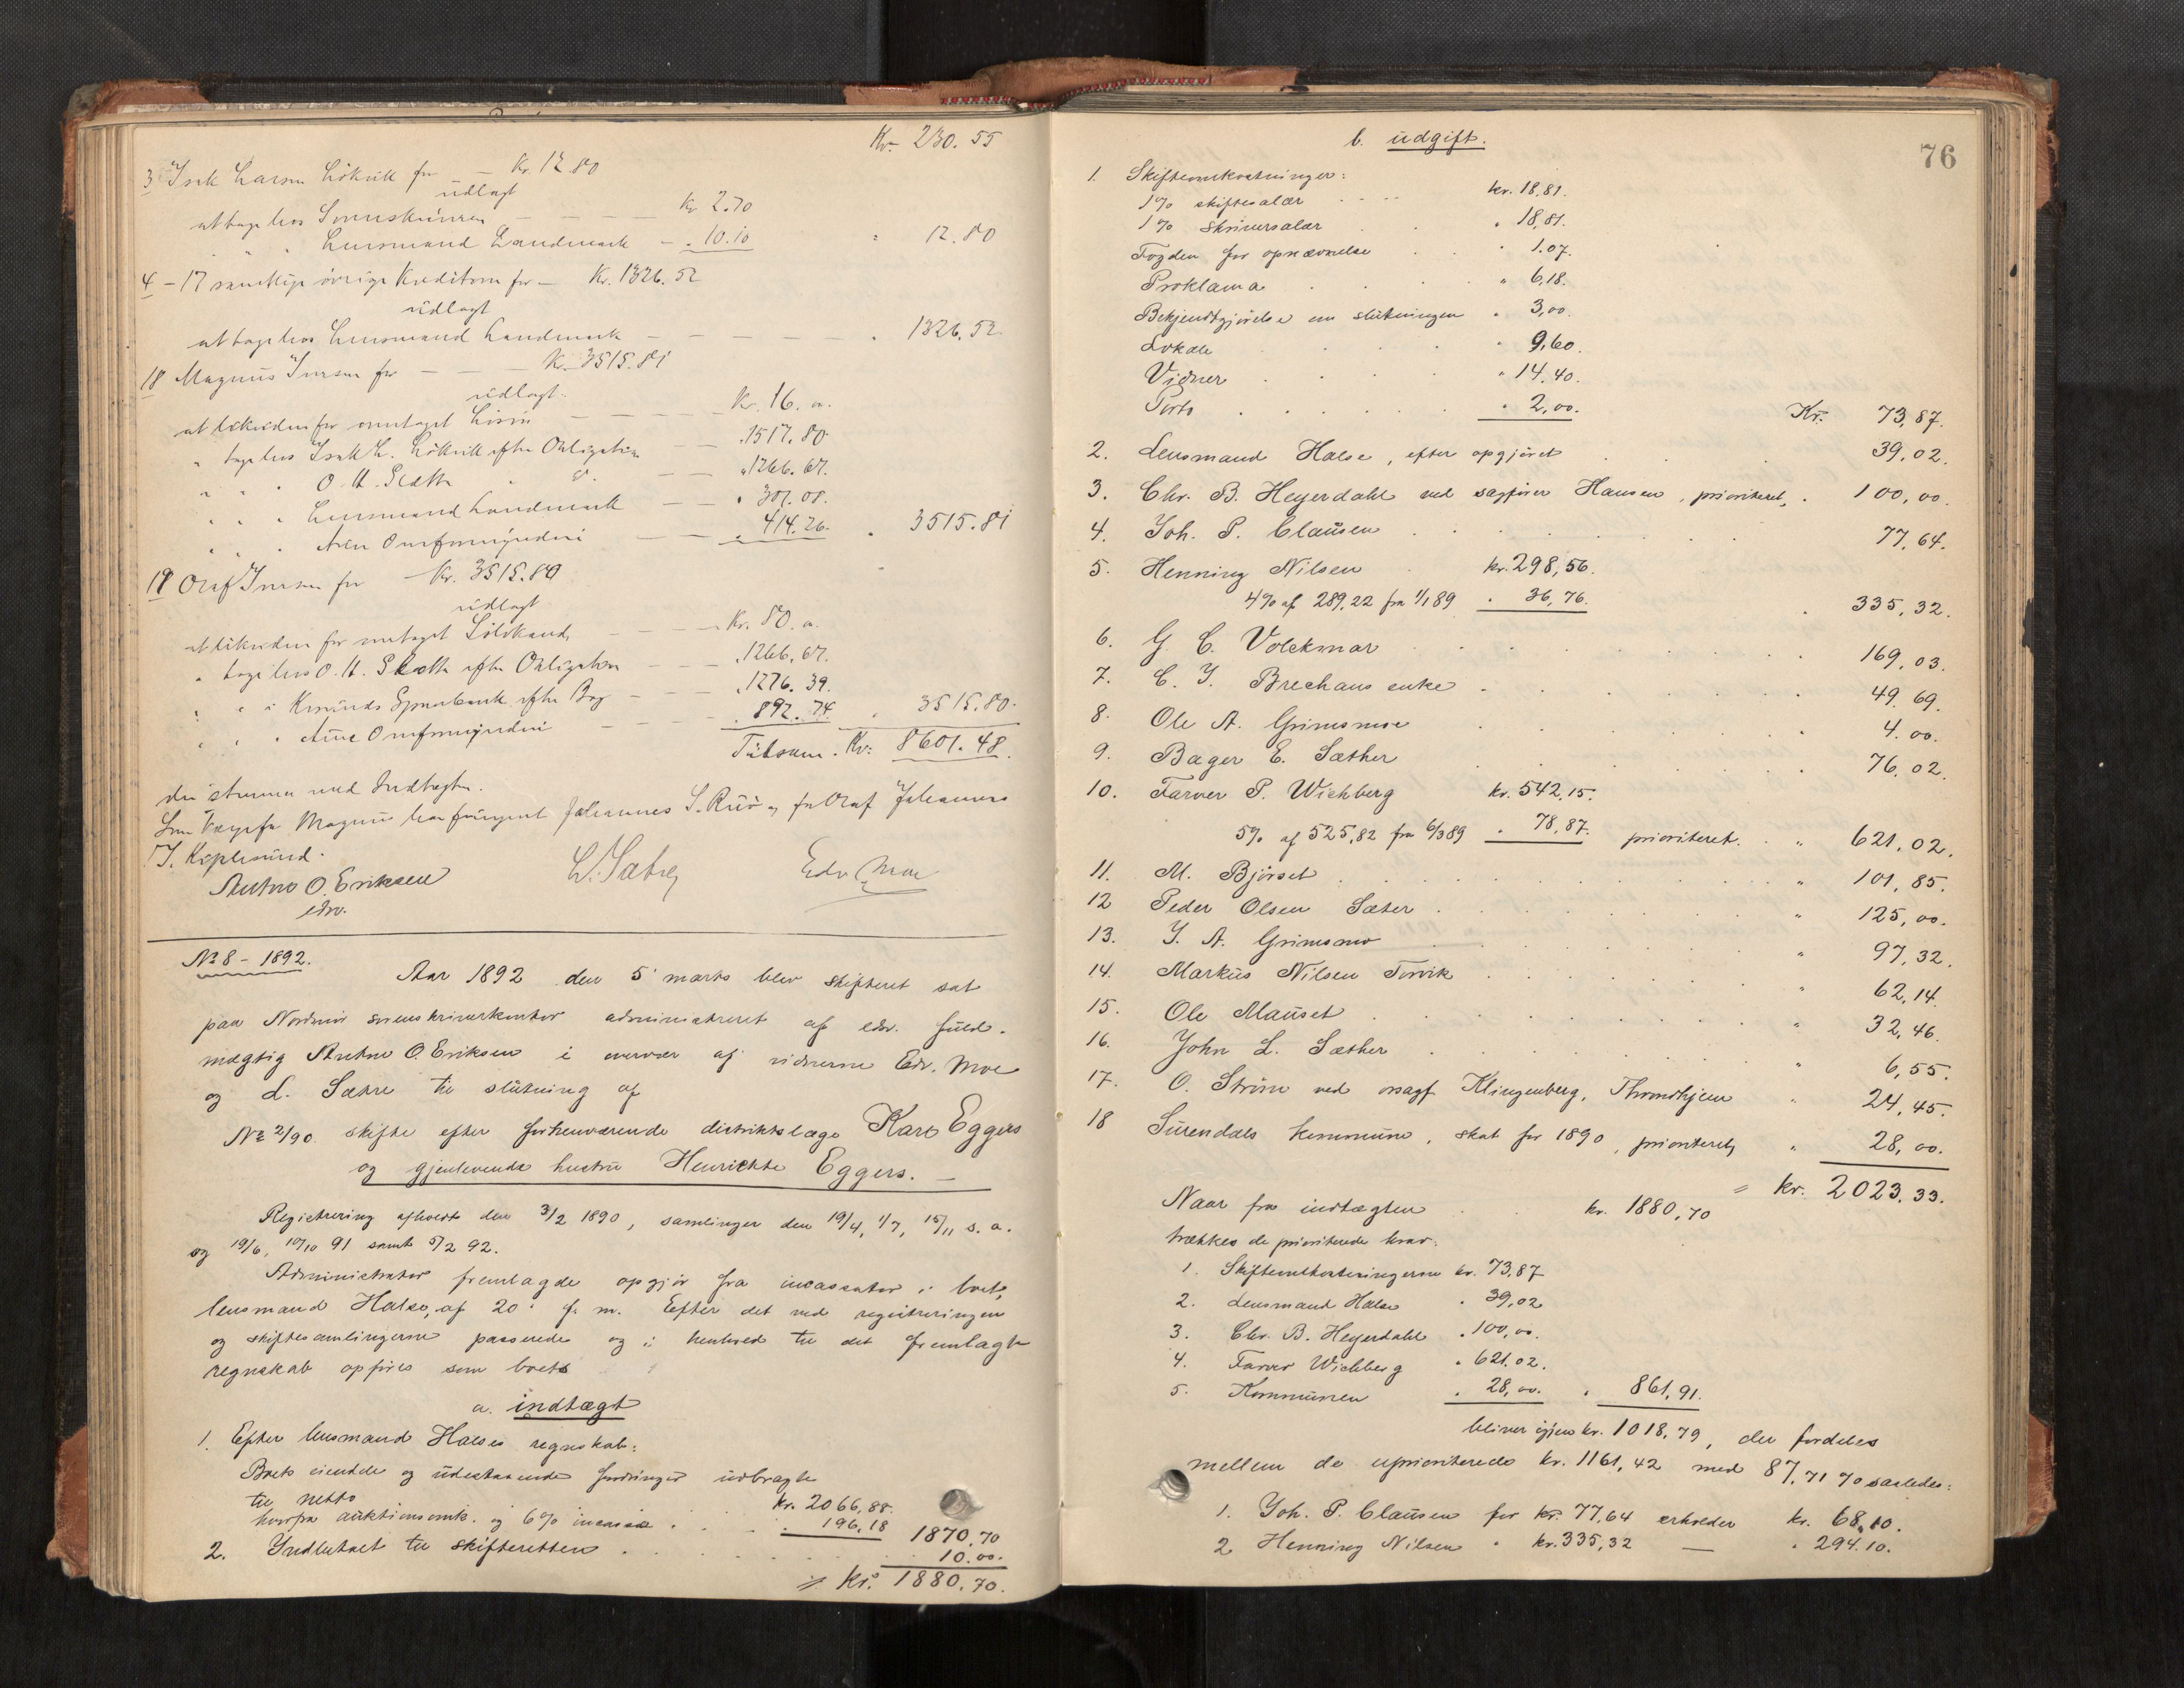 Kr. 230.55
3 Isak Larsen Lökvik for — Kr. 12.80
üdlagt
at tage hos Sorenskriveren — — — Kr 2.70
" " Lensmand Landmark — " 10.10 " 12.80
4 - 17 samtlige övrige Kreditorer for — Kr. 1326.52
üdlagt
at tage hos Lensmand Landmark — — — — " 1326.52
18 Magnüs Iversen for — — — Kr. 3515.81
üdlagt.
at likvidere for modtaget Løsöre — — — Kr. 16. "
" tage hos Isak L. Lökvik efter Obligation — " 1517.80
" " " O. H. Sletta " d° — — " 1266.67.
" " " Lensmand Landmark — — " 301.08.
" " " — — " 414.26. " 3515.81
19 Olaf Iversen for — Kr. 3515.80
üdlagt
at likvidere for modtaget — — — Kr. 80. "
" tage hos O. H. Sletta efter Obligation — — " 1266.67.
" " i Kr.sünds Sparebank efter Bog — — " 1276.39.
" " " — — " 892.74. " 3515.80.
Tilsam. Kr: 8601.48.
der stemmer med Indtægten.
Som Værge for Magnüs har füngeret Johannes S. Rüö og for Olaf Johannes
I. Koplesünd.
Anton O. Eriksen L. Sætre Edv. Moe
edsv.
No 8 - 1892.
Aar 1892 den 5' marts blev skifteret sat
paa Nordmör sorenskriverkontor administreret af edsv. füld-
mægtig Anton O. Eriksen i overvær af vidnerne Edv. Moe
og L. Sætre til slütning af
No 2/90. skifte efter forhenværende distriktslæge Karl Eggers
og gjenlevende hustrü Henriette Eggers. —
Registrering afholdt den 3/2 1890, samlinger den 19/4, 1/7, 15/11 s. a.
og 19/6, 10/10 91 samt 5/2 92.
Administrator fremlagde opgjör fra incassator i boet,
lensmand Halse, af 20' f. m. Efter det ved registreringen
og skiftesamlingerne passerede og i henhold til det fremlagte
regnskab opföres som boets
a. indtægt
1. Efter lensmand Halses regnskab:
Boets eiendele og üdestaaende fordringer üdbragte
til netto kr. 2066,88.
hvorfra auktionsomk. og 6% incasso . . . " 196,18 1870,70
2. Indbetalt til skifteretten . . . . . . 10.00.
= kr. 1880,70.
76
b. üdgift.
1. Skifteomkostninger:
1% skiftesalær . . . . kr. 18,81.
1% skriversalær . . " 18,81.
Fogden for opnævnelse . . " 1.07.
Proklama . . . . " 6,18.
Bekjendtgjörelse om slütningen " 3,00.
Lokale . . . . " 9,60.
Vidner . . . . " 14,40.
Porto . . . . . " 2,00. Kr. 73,87.
2. Lensmand Halse, efter opgjöret . . . 39,02.
3. Chr. B. Heyerdahl ved sagförer Hansen, prioriteret, . 100,00.
4. Joh. P. Claüsen . . . . . . 77,64.
5. Henning Nilsen . kr. 298,56.
4% af 289,22 fra 1/1 89 " 36,76. . 335,32.
6. G. C. Volckmar . . . . . . . 169,03.
7. C. J. Brechans enke . . . . . . 49.69.
8. Ole A. Grimsmoe . . . . . . . 4.00.
9. Bager E. Sæther . . . . . . 76,02.
10. Farver P. Wichberg kr. 542,15.
5% af 525,82 fra 6/3 89 " 78,87. prioriteret. . " 621,02.
11. M. Björset . . . . . . . . " 101,85.
12 Peder Olsen Sæter . . . . . . " 125,00.
13. J. A. Grimsmo . . . . . . " 97,32.
14. Marküs Nilsen Torvik . . . . . " 62,14.
15. Ole Maüset . . . . . . . " 32,46.
16. John L. Sæther . . . . . . " 6,55.
17. O. Ström ved orsagf. Klingenberg, Throndhjem " 24,45.
18 Sürendals kommüne, skat for 1890, prioriteret, " 28,00.
= kr. 2023.33.
Naar fra indtægten . . kr. 1880,70
trækkes de prioriterede krav:
1. Skifteomkostningerne kr. 73,87
2. Lensmand Halse " 39,02
3. Chr. B. Heyerdahl " 100,00.
4. Farver Wichberg " 621.02.
5. Kommünen " 28,00. " 861,91.
bliver igjen kr. 1018,79, der fordeles
mellem de üprioriterede kr. 1161,42 med 87,71 % saaledes:
1. Joh. P. Claüsen for kr. 77,64 erholder kr. 68,10.
2. Henning Nilsen " kr. 335,32 — " 294.10.